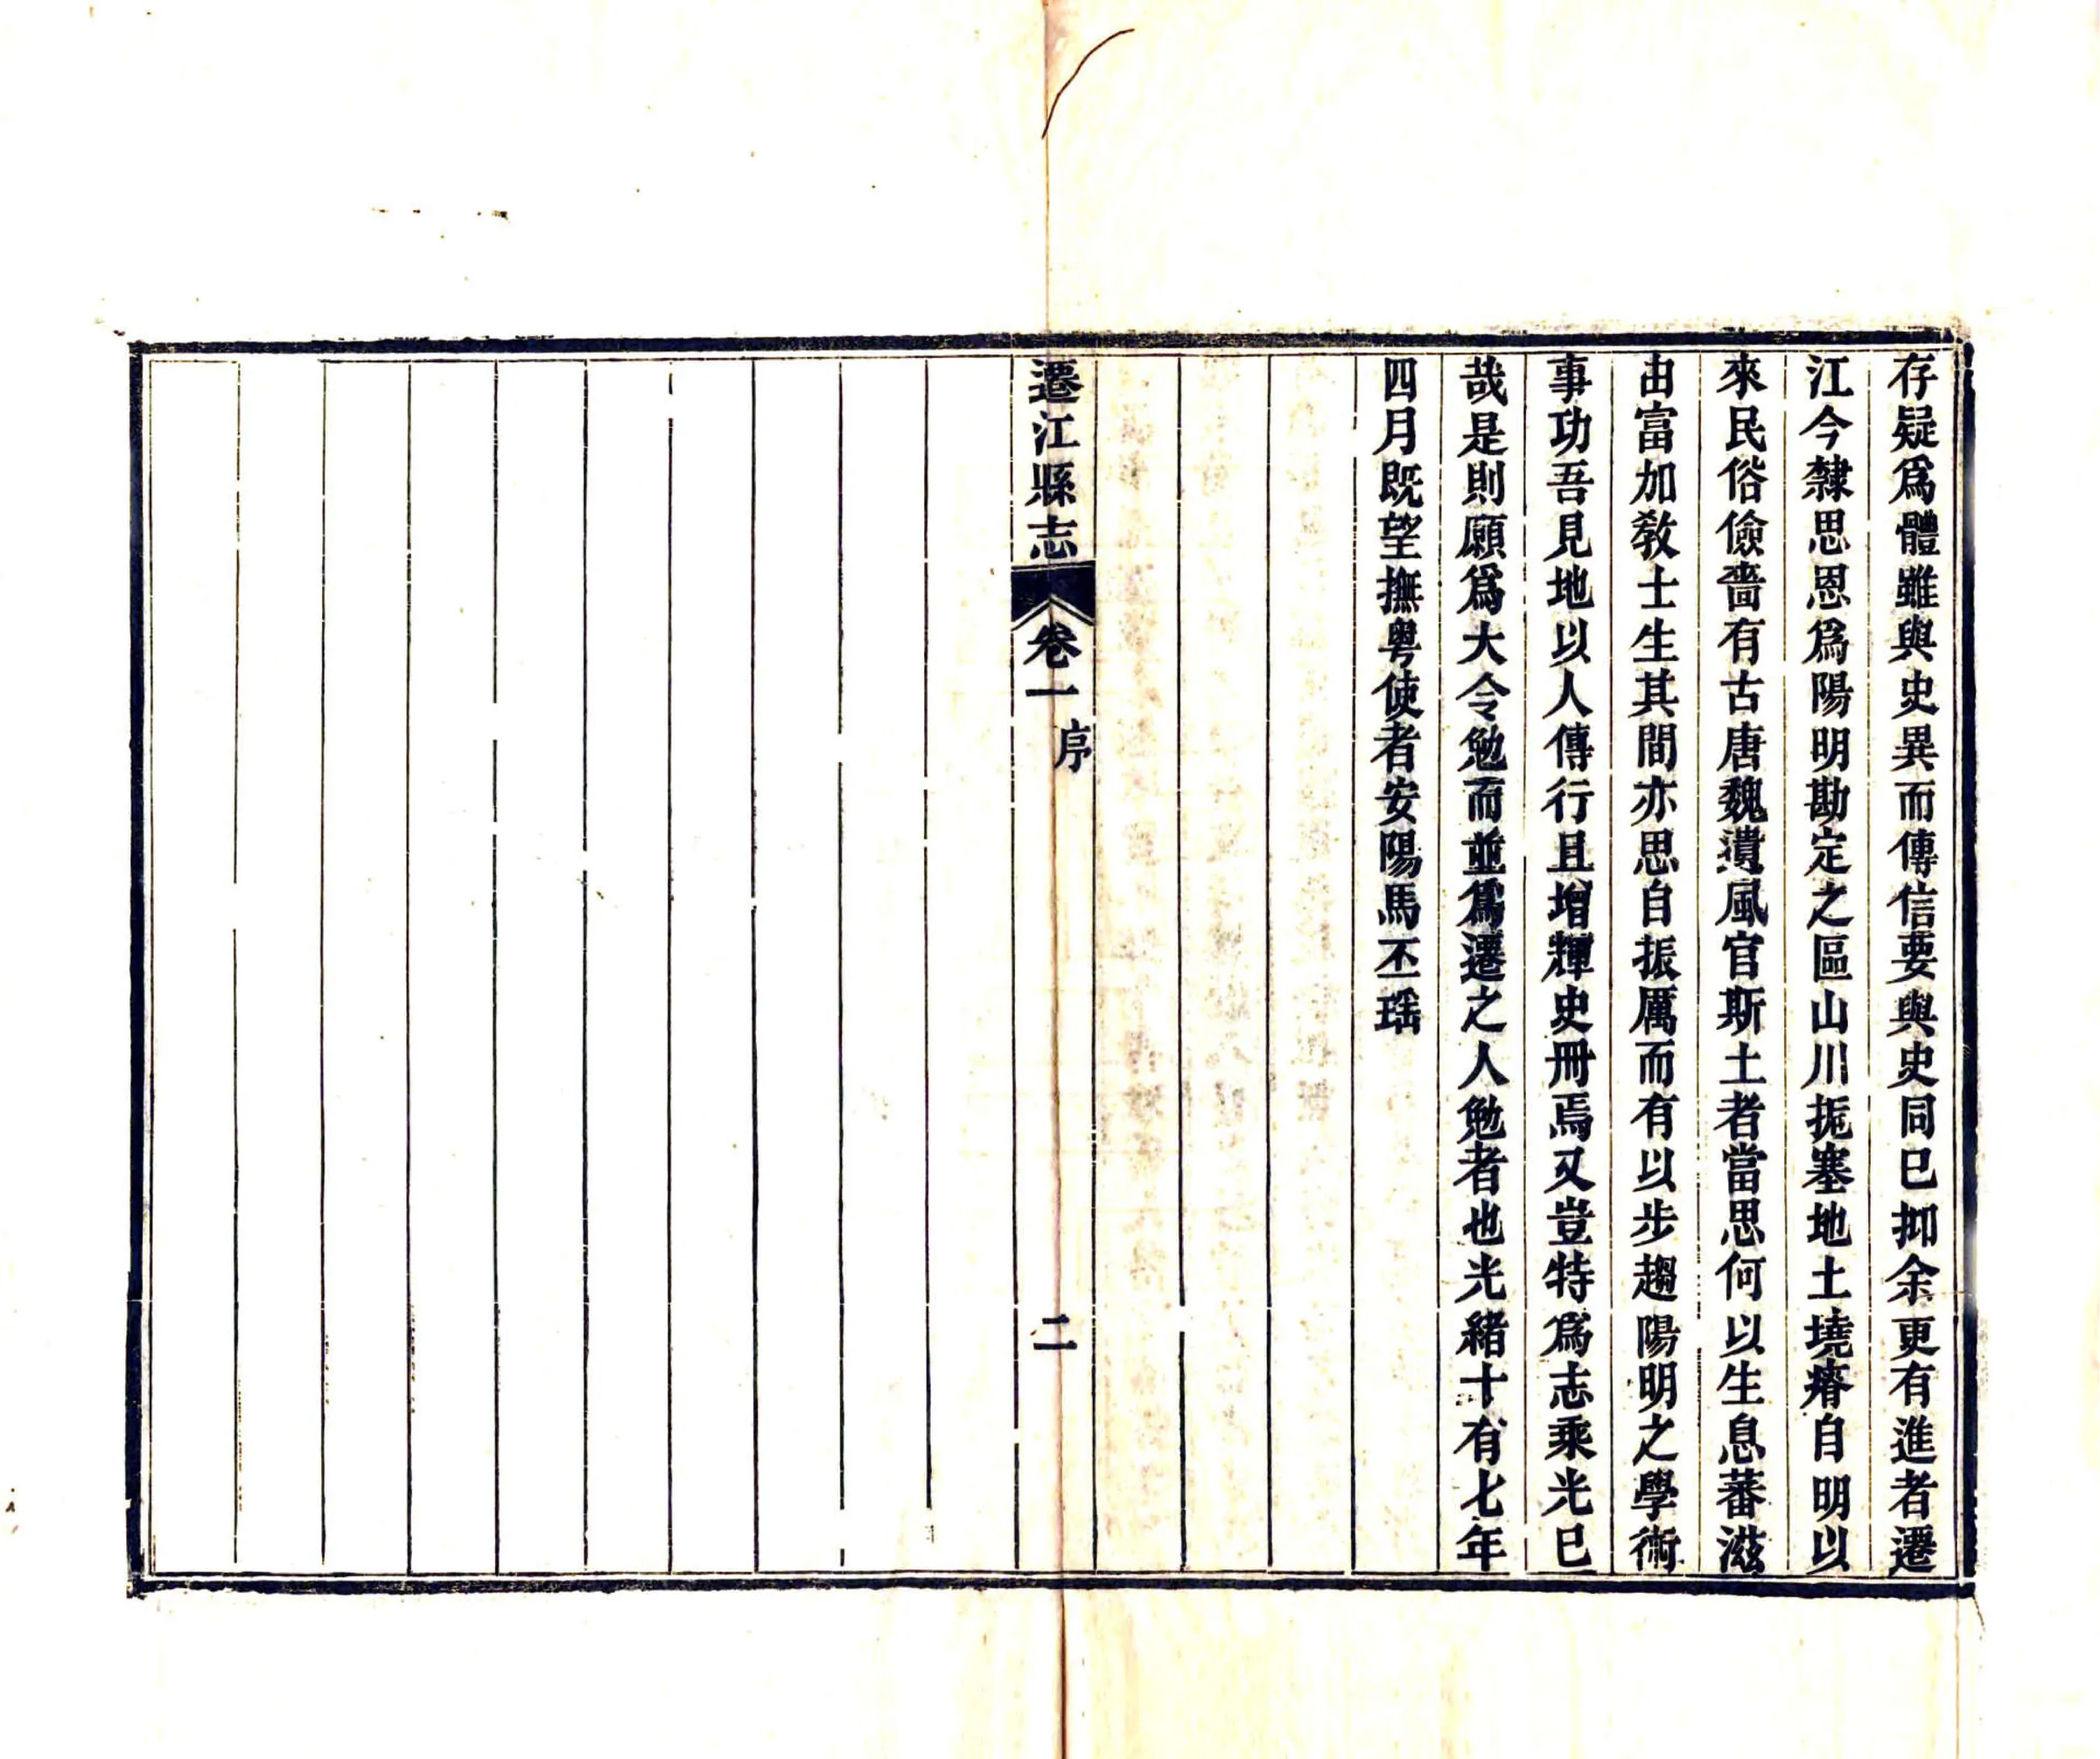 存疑爲體雖與史異而傳信要與史同已抑余更有進者遷
江今隸思恩爲陽明勘定之區山川扼塞地土墝瘠自明以
來民俗儉嗇有古唐魏遺風官斯土者當思何以生息蕃滋
由富加敎士生其間亦思自振厲而有以步趨陽明之學術
事功吾見地以人傳行且增輝史冊焉又豈特爲志乘光已
哉是則願爲大令勉而並爲遷之人勉者也光緒十有七年
四月既望撫粤使者安陽馬丕瑶
遷江縣志
卷一
序
二